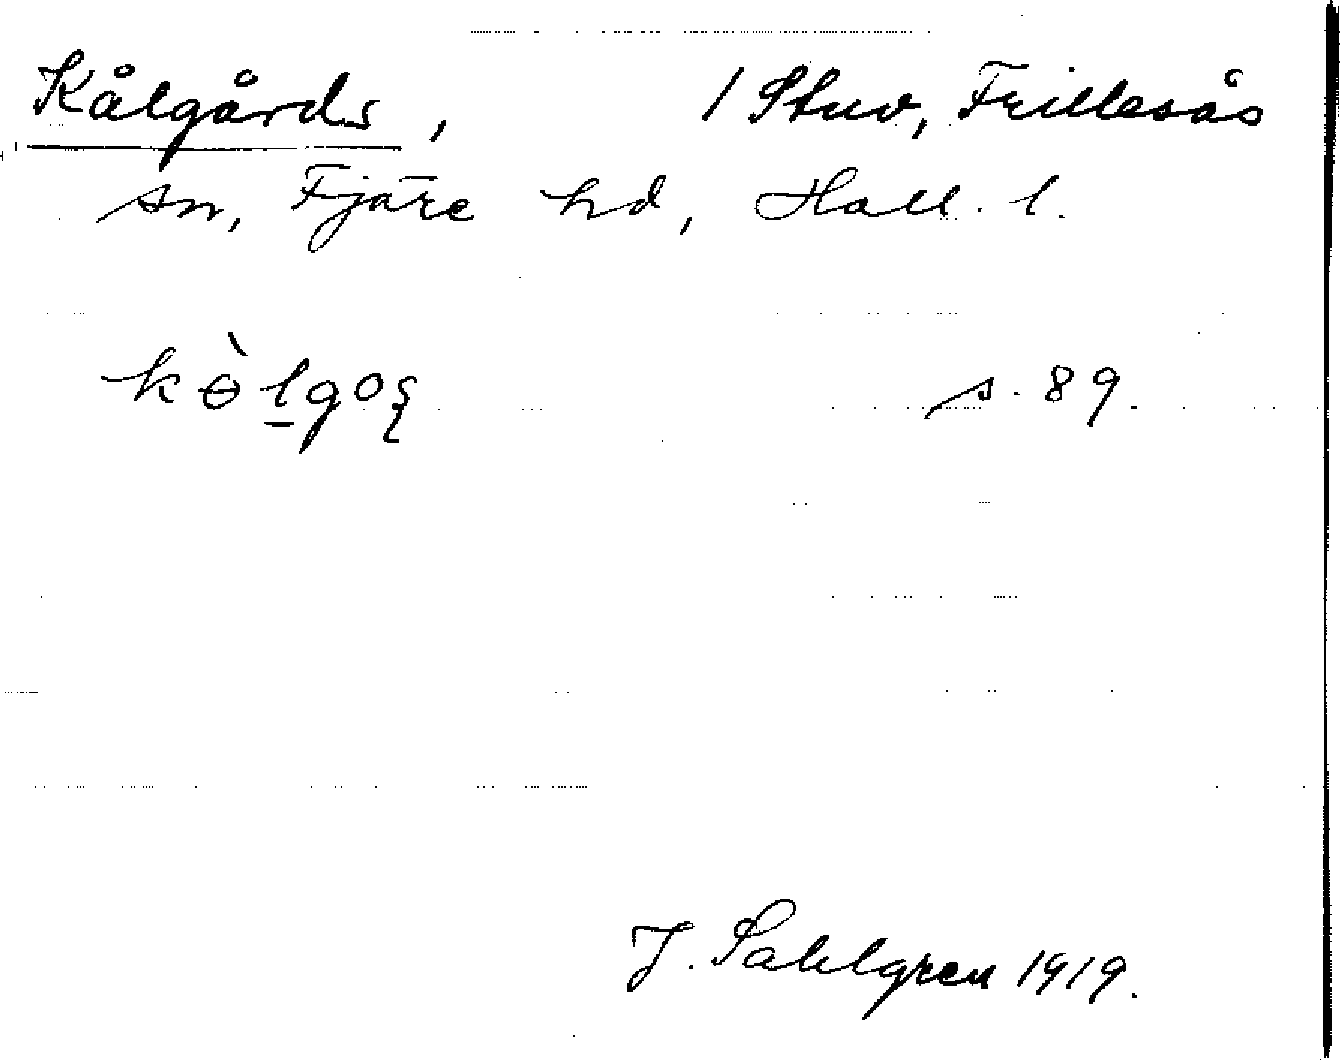 Kålgårds, 1 Stuv, Frillesås
sn, Fjäre hd, Hall. l.
kɵ̀lgoʂ s. 89.
J. Sahlgren 1919.